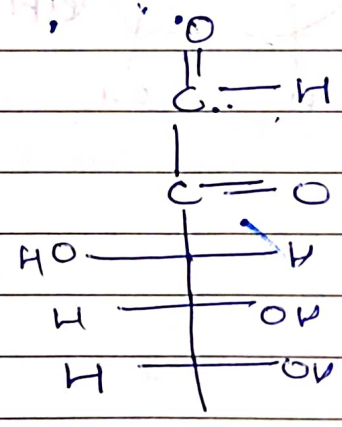 O
C — H
C = O
HO H
H OH
H OH